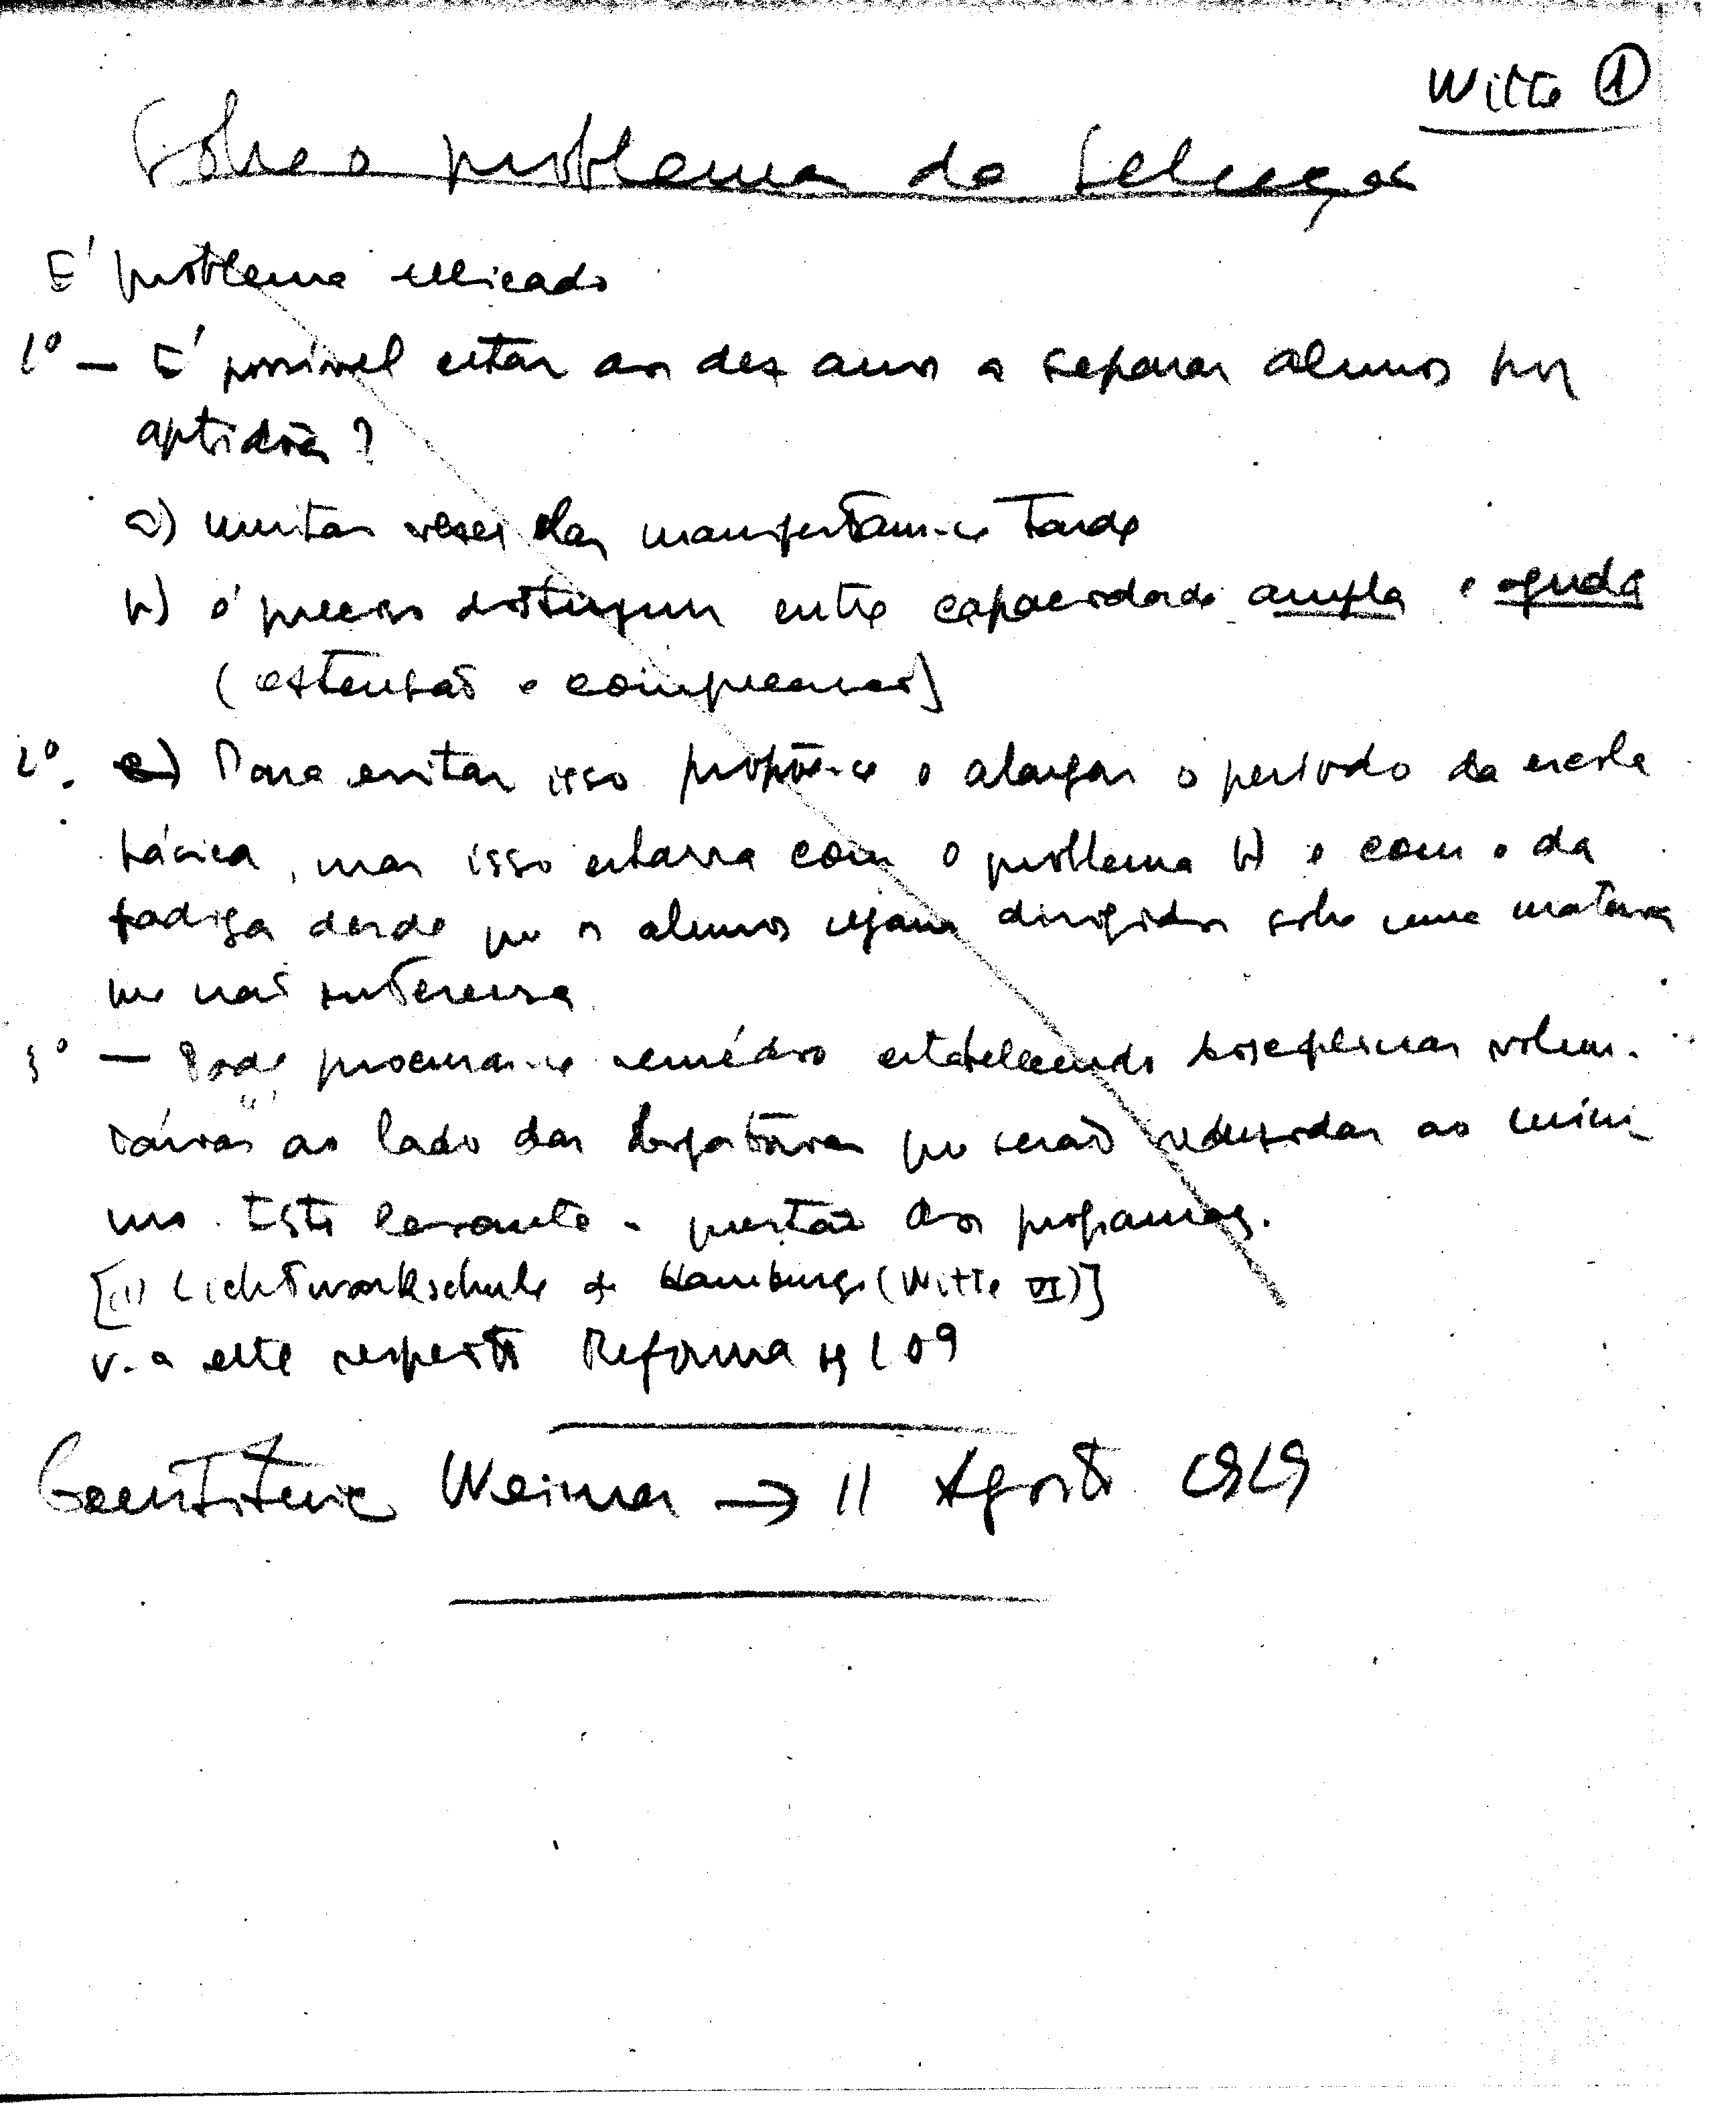 Witte ①
Sobre o problema da Selecção
É problema
1º — É possível estar aos dez anos a separar alunos por
aptidões?
a) muitas vezes elas manifestam-se tarde
b) é preciso distinguir entre capacidade ampla e aguda
(extensão e compreensão)
2º. c) Para evitar isso propõe-se o alargar o período da escola
básica, mas isso esbarra com o problema b) e com o da
fadiga desde que os alunos sejam dirigidos sobre uma matéria
que não interessa
3º — Pode procurar-se remédio estabelecendo disciplinas volun-
tárias ao lado das obrigatórias que serão reduzidas ao míni-
mo. Isto levanta a questão dos programas.
[(1) Lichtwarkschule de Hamburgo (Witte VI)]
v. a este respeito Reforma pg 109
Weimar → 11 Agosto 1919